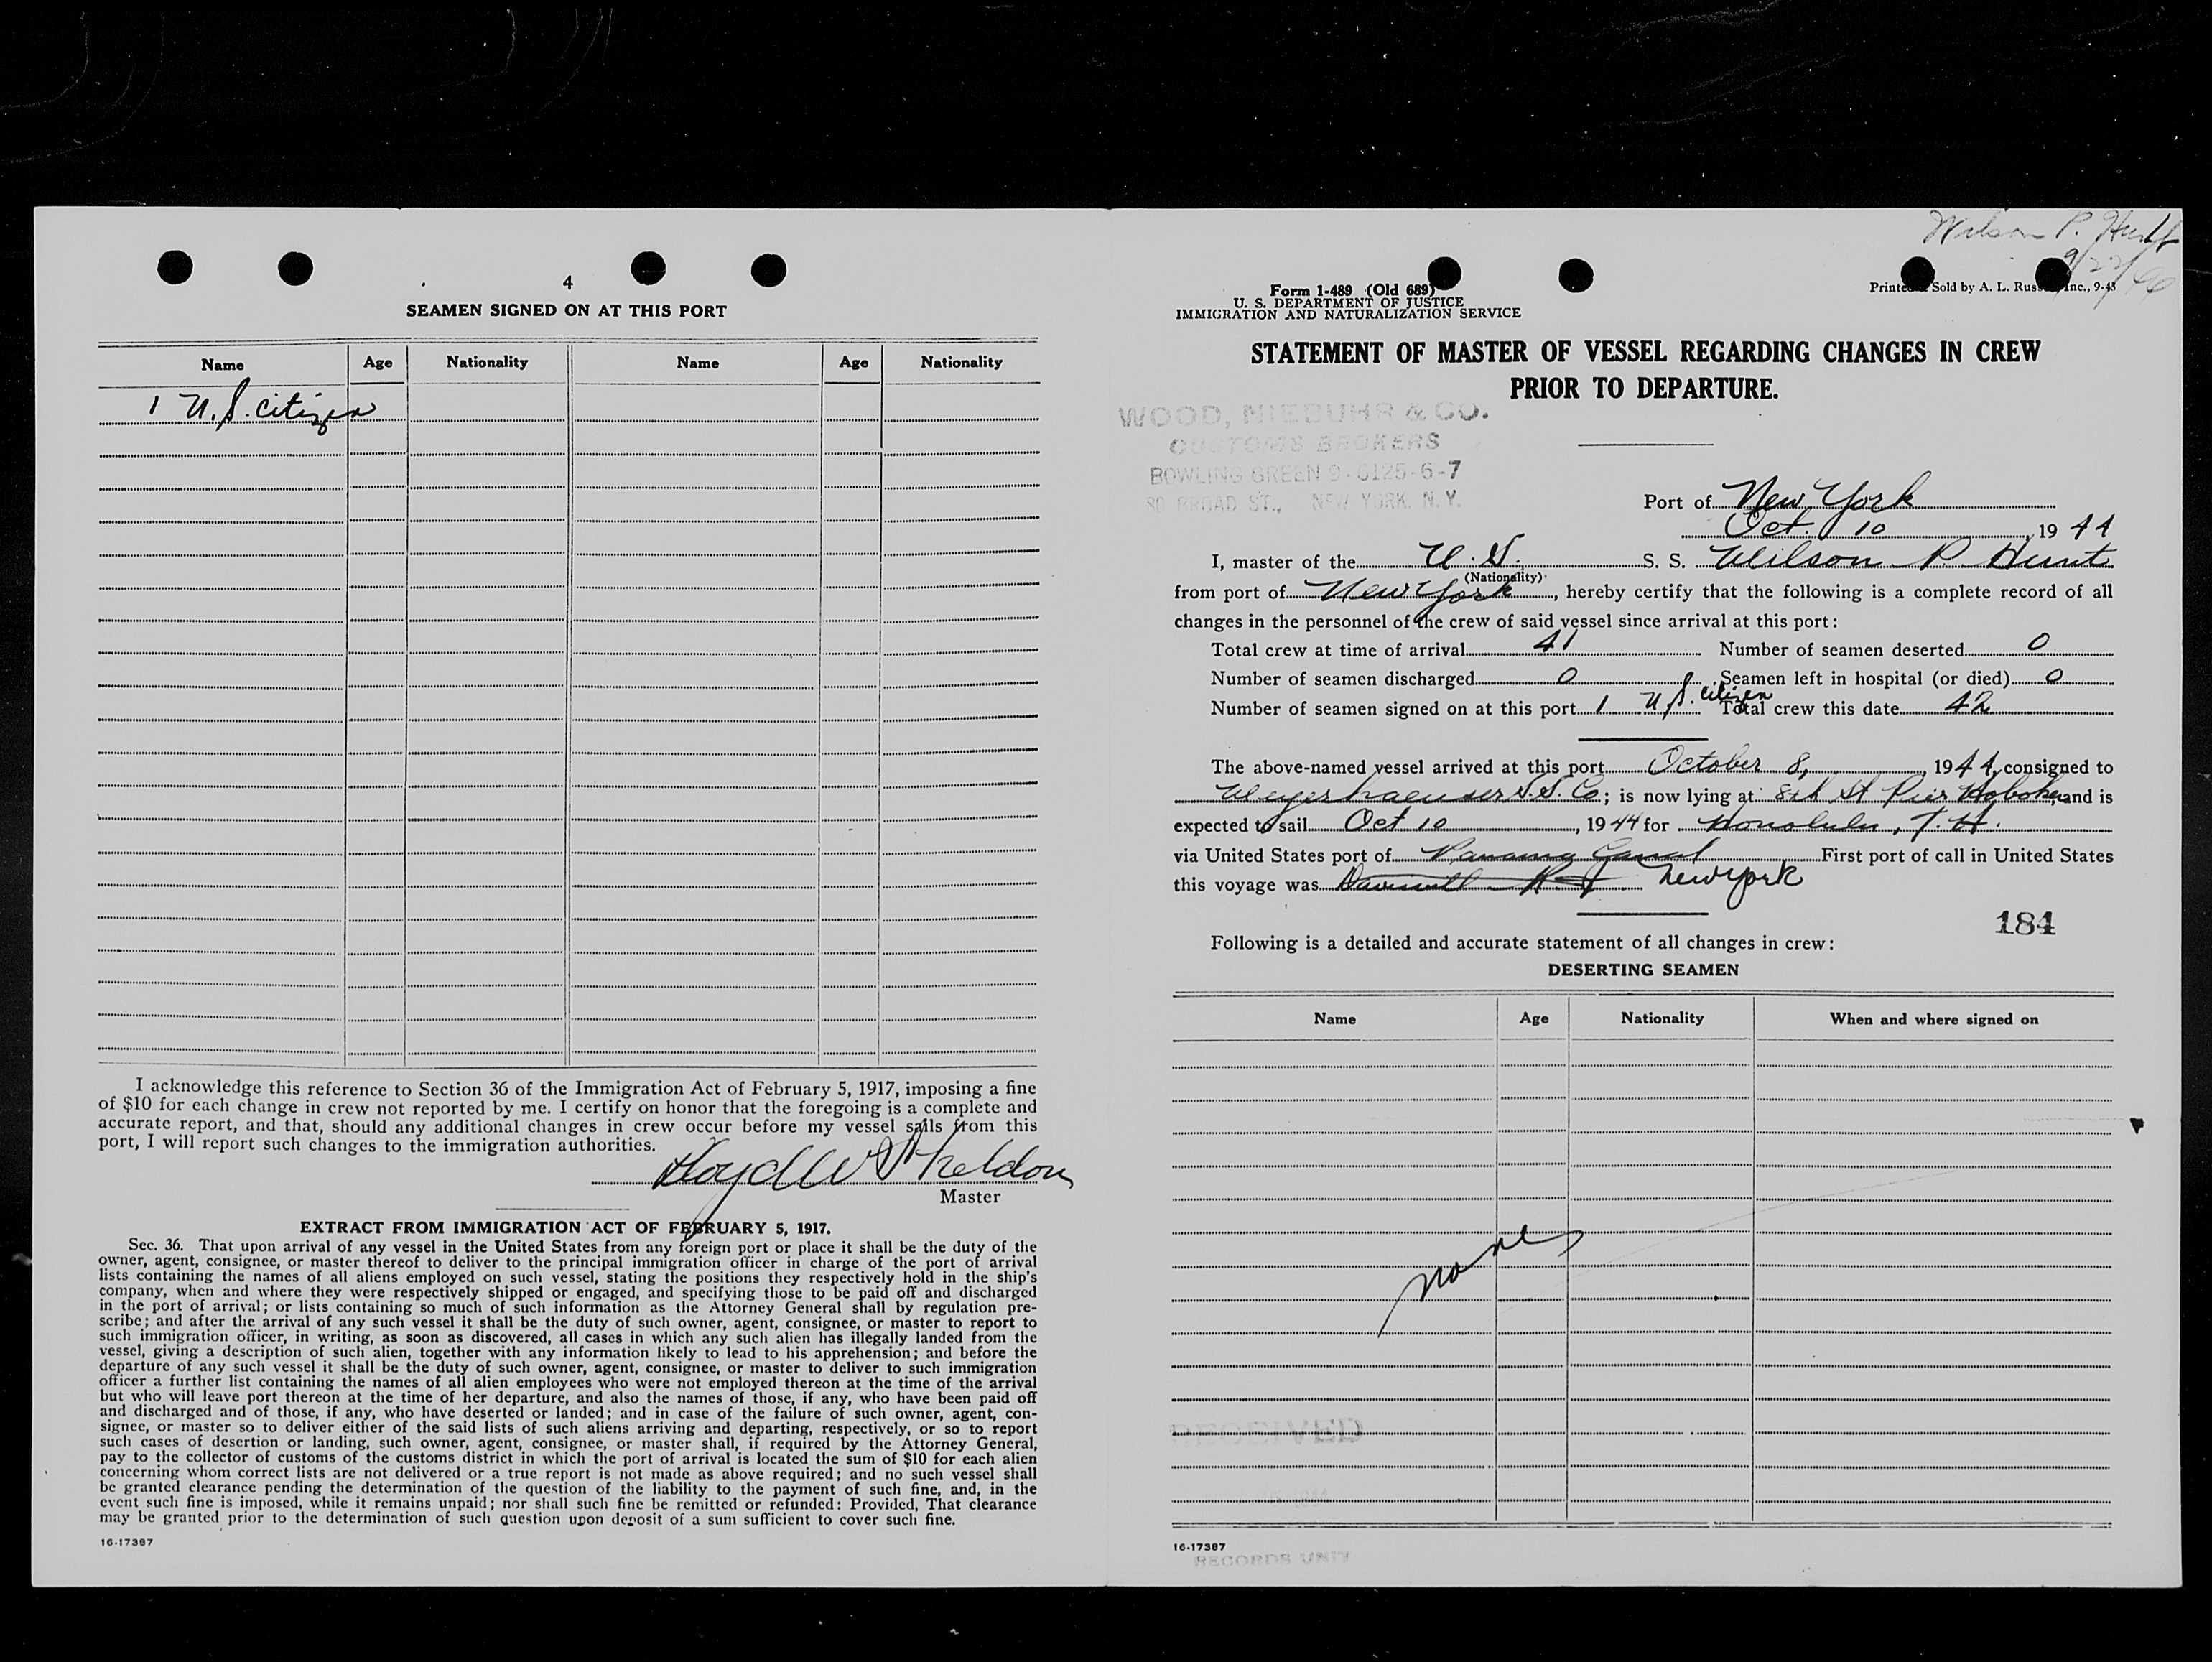 4
SEAMEN SIGNED ON AT THIS PORT
Name Age Nationality Name Age Nationality
1 U.S. citizen
I acknowledge this reference to Section 36 of the Immigration Act of February 5, 1917, imposing a fine
of $10 for each change in crew not reported by me. I certify on honor that the foregoing is a complete and
accurate report, and that, should any additional changes in crew occur before my vessel sails from this
port, I will report such changes to the immigration authorities.
Lloyd W Sheldon
Master
EXTRACT FROM IMMIGRATION ACT OF FEBRUARY 5, 1917.
Sec. 36. That upon arrival of any vessel in the United States from any foreign port or place it shall be the duty of the
owner, agent, consignee, or master thereof to deliver to the principal immigration officer in charge of the port of arrival
lists containing the names of all aliens employed on such vessel, stating the positions they respectively hold in the ship's
company, when and where they were respectively shipped or engaged, and specifying those to be paid off and discharged
in the port of arrival; or lists containing so much of such information as the Attorney General shall by regulation pre-
scribe; and after the arrival of any such vessel it shall be the duty of such owner, agent, consignee, or master to report to
such immigration officer, in writing, as soon as discovered, all cases in which any such alien has illegally landed from the
vessel, giving a description of such alien, together with any information likely to lead to his apprehension; and before the
departure of any such vessel it shall be the duty of such owner, agent, consignee, or master to deliver to such immigration
officer a further list containing the names of all alien employees who were not employed thereon at the time of the arrival
but who will leave port thereon at the time of her departure, and also the names of those, if any, who have been paid off
and discharged and of those, if any, who have deserted or landed; and in case of the failure of such owner, agent, con-
signee, or master so to deliver either of the said lists of such aliens arriving and departing, respectively, or so to report
such cases of desertion or landing, such owner, agent, consignee, or master shall, if required by the Attorney General,
pay to the collector of customs of the customs district in which the port of arrival is located the sum of $10 for each alien
concerning whom correct lists are not delivered or a true report is not made as above required; and no such vessel shall
be granted clearance pending the determination of the question of the liability to the payment of such fine, and, in the
event such fine is imposed, while it remains unpaid; nor shall such fine be remitted or refunded: Provided, That clearance
may be granted prior to the determination of such question upon deposit of a sum sufficient to cover such fine.
16-17387
Wilson P. Hunt
Form 1-489 (Old 689)
U. S. DEPARTMENT OF JUSTICE
IMMIGRATION AND NATURALIZATION SERVICE
Printed Sold by A. L. Russ Inc., 9-43
STATEMENT OF MASTER OF VESSEL REGARDING CHANGES IN CREW
PRIOR TO DEPARTURE.
WOOD, NIEBUHR & CO.
CUSTOMS BROKERS
BOWLING GREEN 9-6125-6-7
80 BROAD ST., NEW YORK, N. Y.
Port of New York
Oct. 10, 1944
I, master of the U.S. S. S. Wilson P. Hunt
(Nationality)
from port of New York, hereby certify that the following is a complete record of all
changes in the personnel of the crew of said vessel since arrival at this port:
Total crew at time of arrival 41 Number of seamen deserted 0
Number of seamen discharged 0 Seamen left in hospital (or died) 0
Number of seamen signed on at this port 1 U.S. citizen Total crew this date 42
The above-named vessel arrived at this port October 8, 1944, consigned to
Weyerhaeuser S.S. Co; is now lying at 8th St Pier Hoboken and is
expected to sail Oct 10, 1944 for Honolulu, T.H.
via United States port of Panama Canal First port of call in United States
this voyage was New York
184
Following is a detailed and accurate statement of all changes in crew:
DESERTING SEAMEN
Name Age Nationality When and where signed on
none
RECEIVED
16-17387
RECORDS UNIT